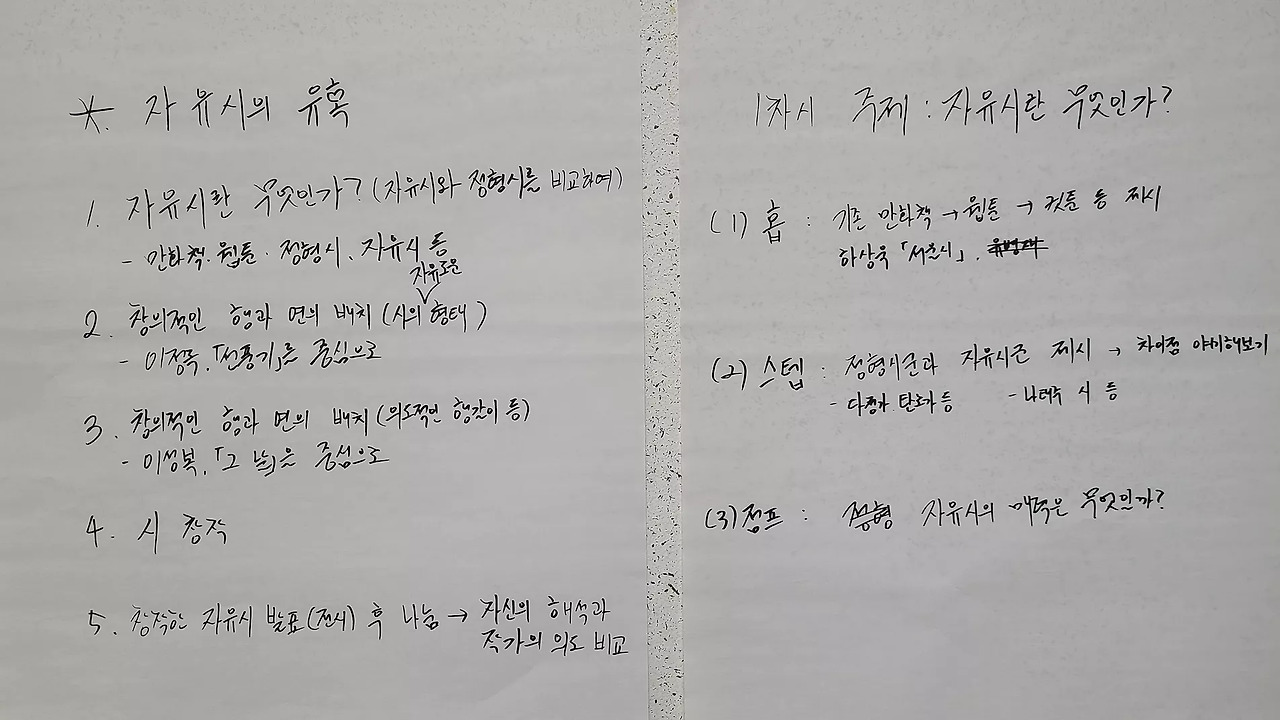 *. 자유시의 유혹
1. 자유시란 무엇인가? (자유시와 정형시를 비교하여)
- 만화책·웹툰·정형시、자유시 등
자유로운
2. 창의적인 행과 연의 배치 (시의 형태)
- 이정록,「선풍기」를 중심으로
3. 창의적인 행과 연의 배치 (의도적인 행갈이 등)
- 이성복,「그 날」을 중심으로
4. 시 창작
5. 창작한 자유시 발표(전시) 후 나눔 → 자신의 해석과
작가의 의도 비교
1차시 주제 : 자유시란 무엇인가?
(1) 홉 : 기존 만화책 → 웹툰 → 컷툰 등 제시
하상욱「서울시」.
(2) 스텝 : 정형시군과 자유시군 제시 → 차이점 이야기해보기
- 다정가 탄로가 등 - 나태주 시 등
(3) 점프 : 자유시의 매력은 무엇인가?